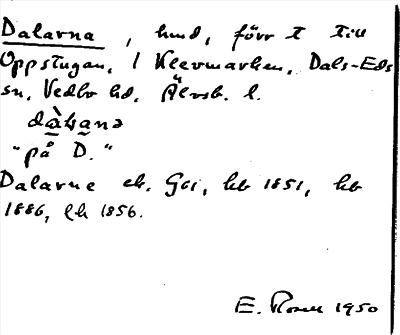 Dalarna, lund, förr t till
Oppstugan, 1 Klevmarken, Dals-Eds
sn, Vedbo hd, Älvsb. l.
"på D."
Dalarne ek. Gs1, hb 1851, hb
1886, lh 1856.
E. Rosell 1950